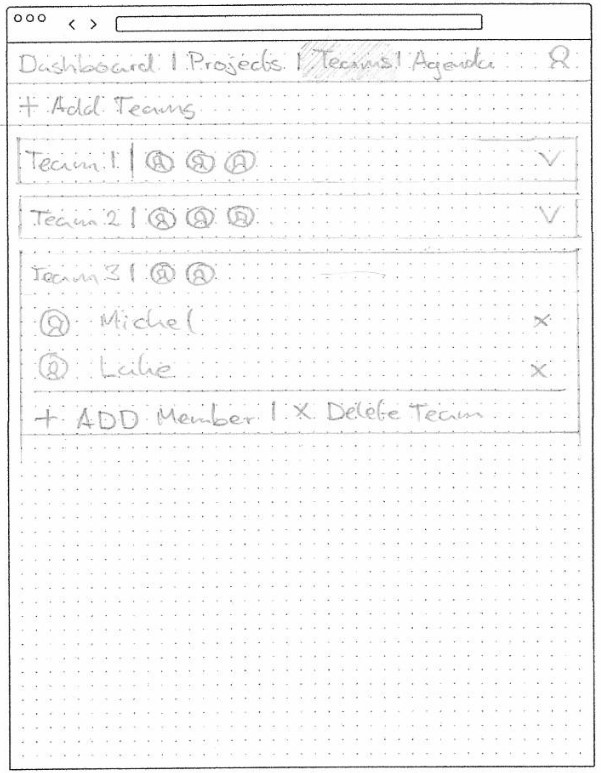 Dashboard | Projects | Teams | Agenda
+ Add Teams
Team 1 |
Team 2 |
Team 3 |
Michel x
Luke x
+ ADD Member | x Delete Team